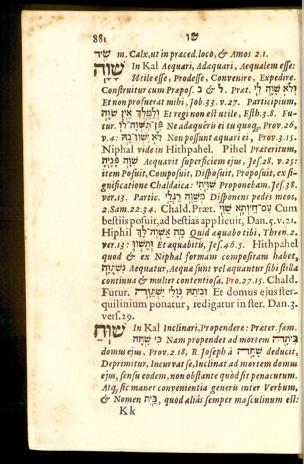 881 שו
שיד m. Calx, ut in præced. loco, & Amos 2.1.
שוה In Kal Aequari, Adaquari, Aequalem esse:
Utile esse, Prodesse, Convenire, Expedire.
Construitur cum Præpos. ל & ב. Præt. ולא שוה לי
Et non profuit mihi, Job.33. v.27. Participium,
ולמלך אין שוה Et regi non est utile, Esth.3.8. Fu-
tur. פן תשוה לו Ne adæqueris ei tu quoq, Prov.26,
v.4: לא ישוו בה Non possunt æquari ei, Prov.3.15.
Niphal vide in Hithpahel. Pihel Præteritum,
שוה פניה Aequavit superficiem ejus, Jes.28. v.25:
item Posuit, Composuit, Disposuit, Proposuit, ex si-
gnificatione Chaldaica: שויתי Proponebam, Jes.38.
ver.13. Partic. משוה רגלי Disponens pedes meos,
2.Sam.22.34. Chald. Præt. עם חיותא שוי Cum
bestiis posuit, ad bestias applicuit, Dan.5.v.21.
Hiphil מה אשוה לך Quid æquabo tibi, Thren.2.
ver.13: ותשוו Et æquabitis, Jes.46.5. Hithpahel
quod & ex Niphal formam compositam habet,
נשתוה Aequatur, Aequa sunt vel æquantur sibi stilla
continua & mulier contentiosa, Pro.27.15. Chald.
Futur. וביתה נולי ישתוה Et domus ejus ster-
quilinium ponatur, redigatur in ster. Dan.3.
vers.29.
שוח In Kal Inclinari, Propendere: Præter. fœm.
כי שחה אל מות ביתה Nam propendet ad mortem
domus ejus, Prov.2.18, R. Joseph à שחה deducit,
Deprimitur, Incurvat se, Inclinat ad mortem domus
ejus, sensu eodem, non obstante quòd sit penacutum.
Atq, sic manet convenientia generis inter Verbum,
& Nomen בית, quod aliàs semper masculinum est:
Kk